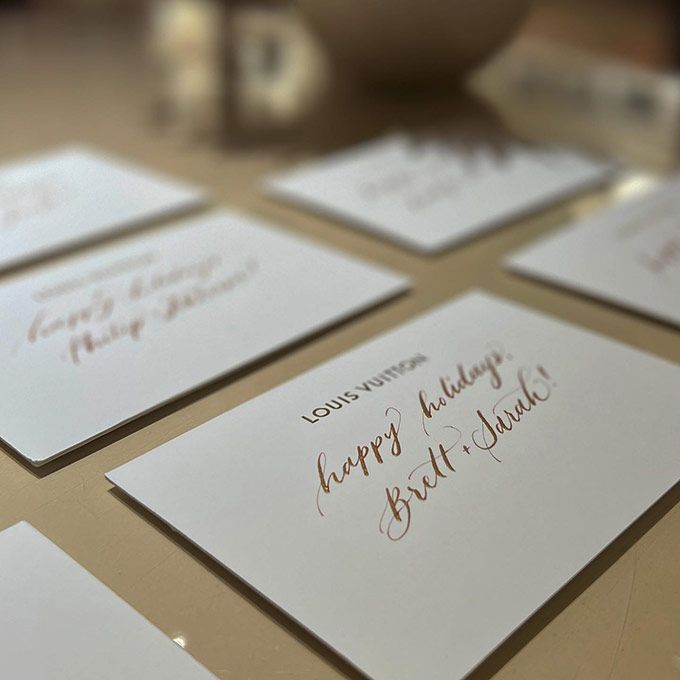 LOUIS VUITTON
happy holidays,
Brett + Sarah!
happy holidays
Philip